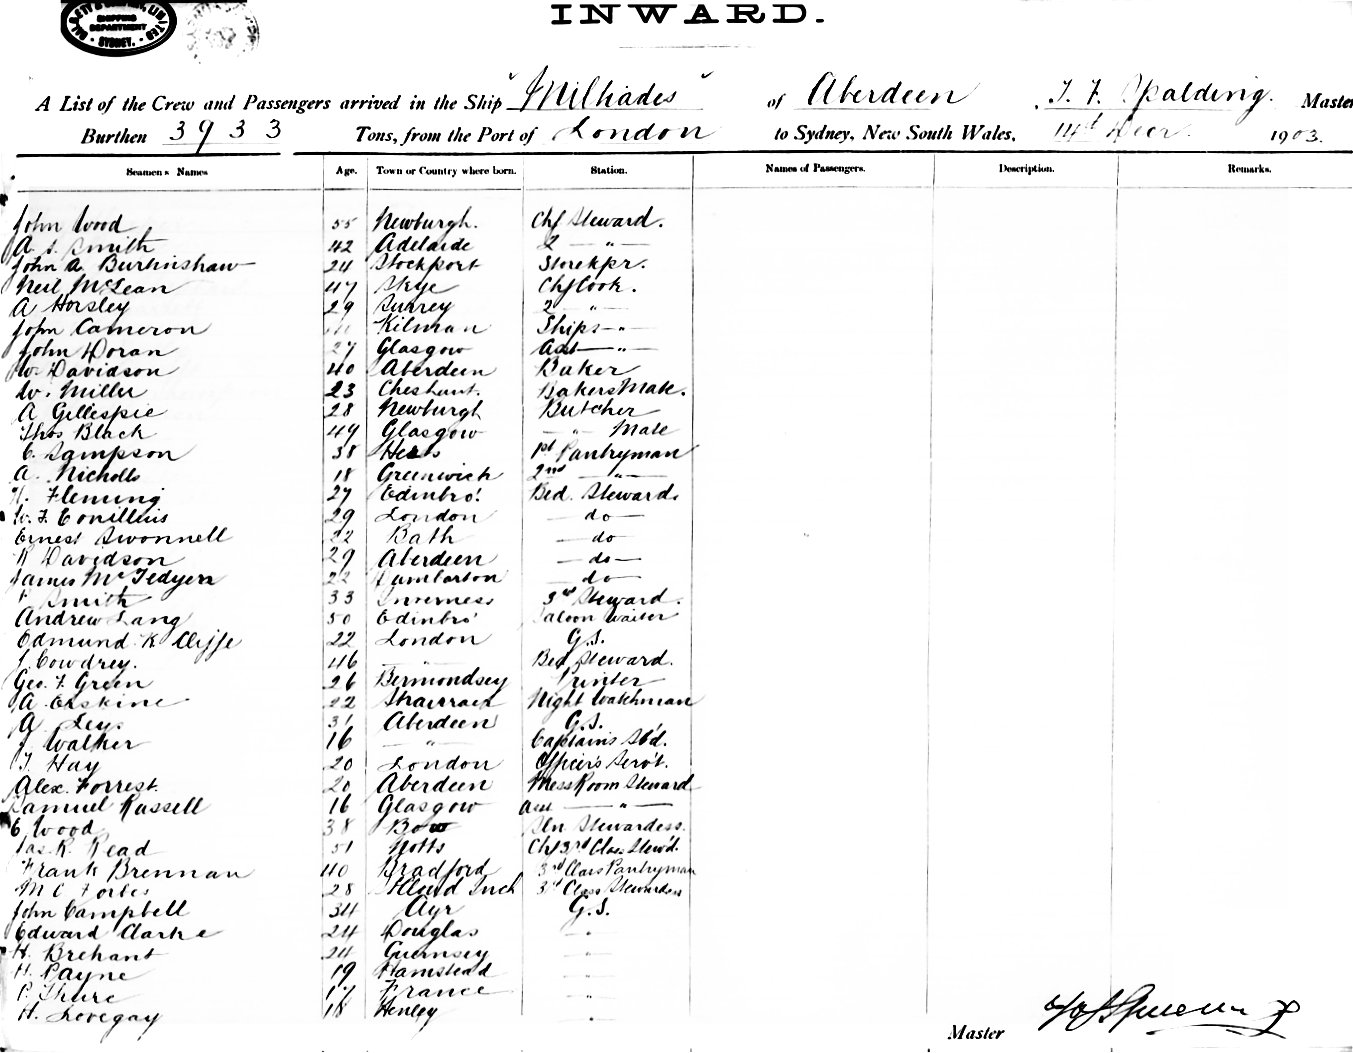 SHIPPING
DEPARTMENT
SYDNEY.
INWARD.
A List of the Crew and Passengers arrived in the Ship "Miltiades" of Aberdeen, T. F. Spalding. Master
Burthen 3933 Tons, from the Port of London to Sydney, New South Wales, 14th Decr. 1903.
Seamens Names Age. Town or Country where born. Station. Names of Passengers. Description. Remarks.
John Wood 55 Newburgh. Chf Steward.
A. S. Smith 42 Adelaide 2 — " —
John A Burtinshaw 24 Stockport Storekpr.
Neil McLean 47 Skye Chf Cook.
A Horsley 29 Surrey 2 — " —
John Cameron Kilman Ships — " —
John Doran 27 Glasgow Asst — " —
W. Davidson 40 Aberdeen Baker
W. Miller 23 Cheshunt. Bakers Mate.
A Gillespie 28 Newburgh Butcher
Thos Black 49 Glasgow — " — Mate
C. Sampson 38 Herts 1st Pantryman
A. Nicholls 18 Greenwich 2nd — " —
H. Fleming 27 Edinbro'. Bed. Stewards
W. F. 29 London — do —
Ernest Swonnell 22 Bath — do
R Davidson 29 Aberdeen — do —
James 22 Dumbarton — do —
Smith 33 Inverness 3rd Steward.
Andrew Lang 50 Edinbro' Saloon Waiter
Edmund K Cliffe 22 London G.S.
J. Cowdrey. 46 — " — Bed Steward.
Geo. F. Green 26 Bermondsey Printer
A Erskine 22 Stranraer Night Watchman
A Ley. 31 Aberdeen G.S.
J Walker 16 — " — Captain's Std.
T. Hay 20 London Officer's Serv't.
Alex. Forrest. 20 Aberdeen Mess Room Steward
Samuel Russell 16 Glasgow Asst — " —
E Wood 38 Bow Sln Stewardess.
Jas. R. Read 51 Notts Chf 3rd Class Stew'd.
Frank Brennan 40 Bradford 3rd Class Pantryman
M C Forbes 28 3rd Class Stewardess
John Campbell 34 Ayr G.S.
Edward Clarke 24 Douglas "
H. Brehant 24 Guernsey "
H. Payne 19 Hamstead "
P. Thure 17 France "
H. Lovegay 18 Henley "
Master